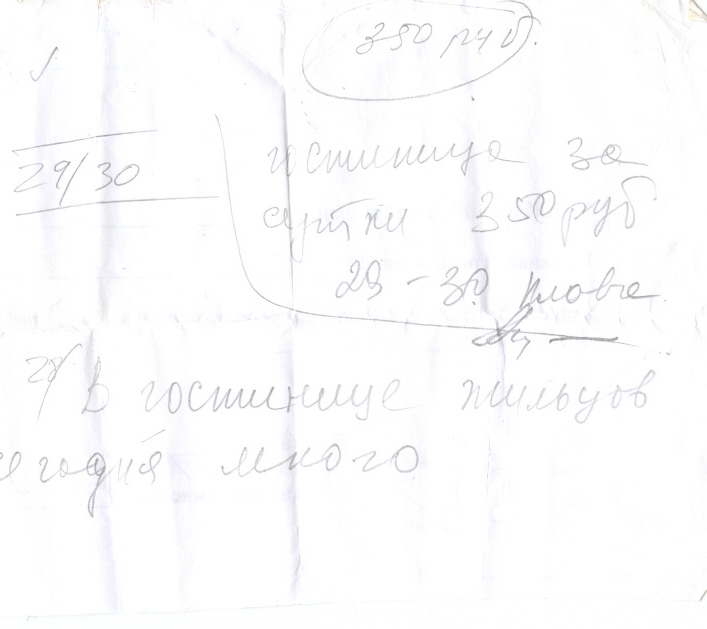 350 руб.
29/30
гостиница за
сутки 350 руб
29-30
28/ В гостинице жильцов
сегодня много